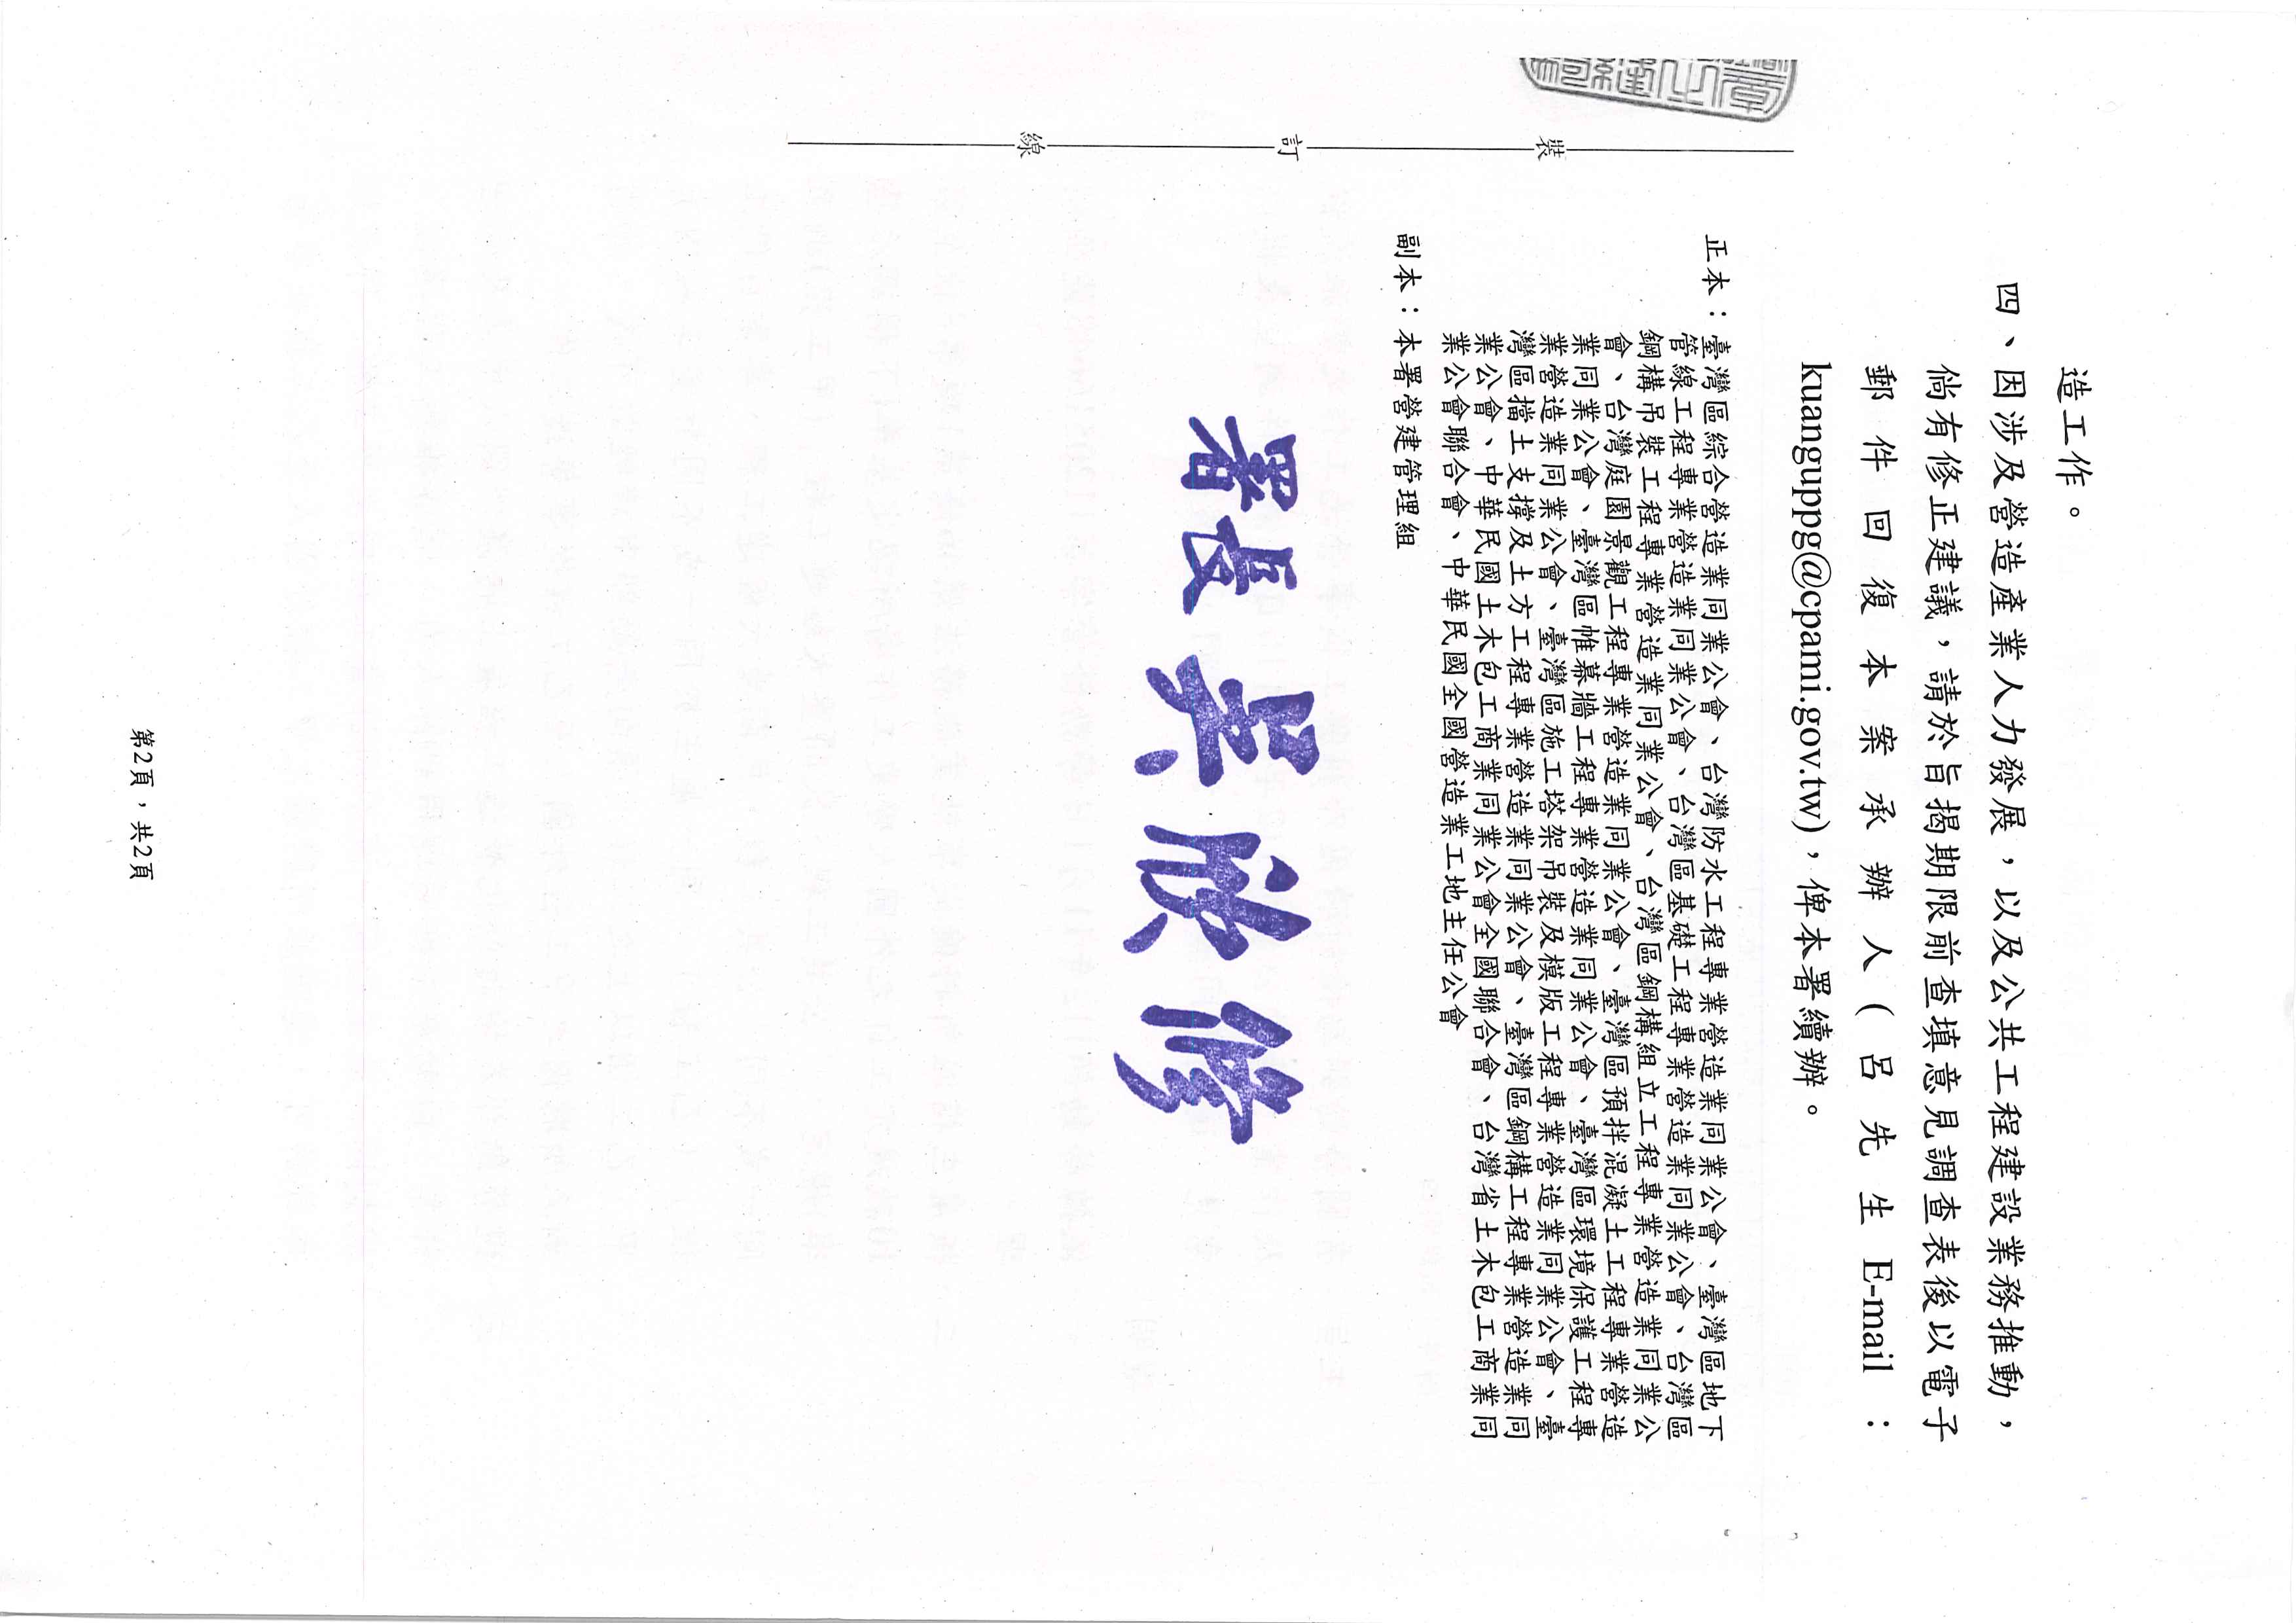 造工作。
四、因涉及營造產業人力發展，以及公共工程建設業務推動，
倘有修正建議，請於旨揭期限前查填意見調查表後以電子
郵件回復本案承辦人(呂先生E-mail：
kuanguppg@cpami.gov.tw)，俾本署續辦。
正本：臺灣區綜合營造業同業公會、台灣防水工程專業營造業同業公會、臺灣區地下
管線工程專業營造業同業公會、台灣區基礎工程專業營造業同業公會、台灣區
鋼構吊裝工程專業營造業同業公會、台灣區鋼構組立工程專業營造業同業公
會、台灣庭園景觀工程專業營造業同業公會、臺灣區預拌混凝土工程專業營造
業同業公會、臺灣區帷幕牆工程專業營造業同業公會、臺灣區環境保護工程專
業營造業同業公會、臺灣區施工塔架吊裝及模版工程專業營造業同業公會、臺
灣區擋土支撐及土方工程專業營造業同業公會、臺灣區鋼構工程專業營造業同
業公會、中華民國土木包工商業同業公會全國聯合會、台灣省土木包工商業同
業公會聯合會、中華民國全國營造業工地主任公會
副本：本署營建管理組
署長吳欣修
裝
訂
線
第2頁，共2頁